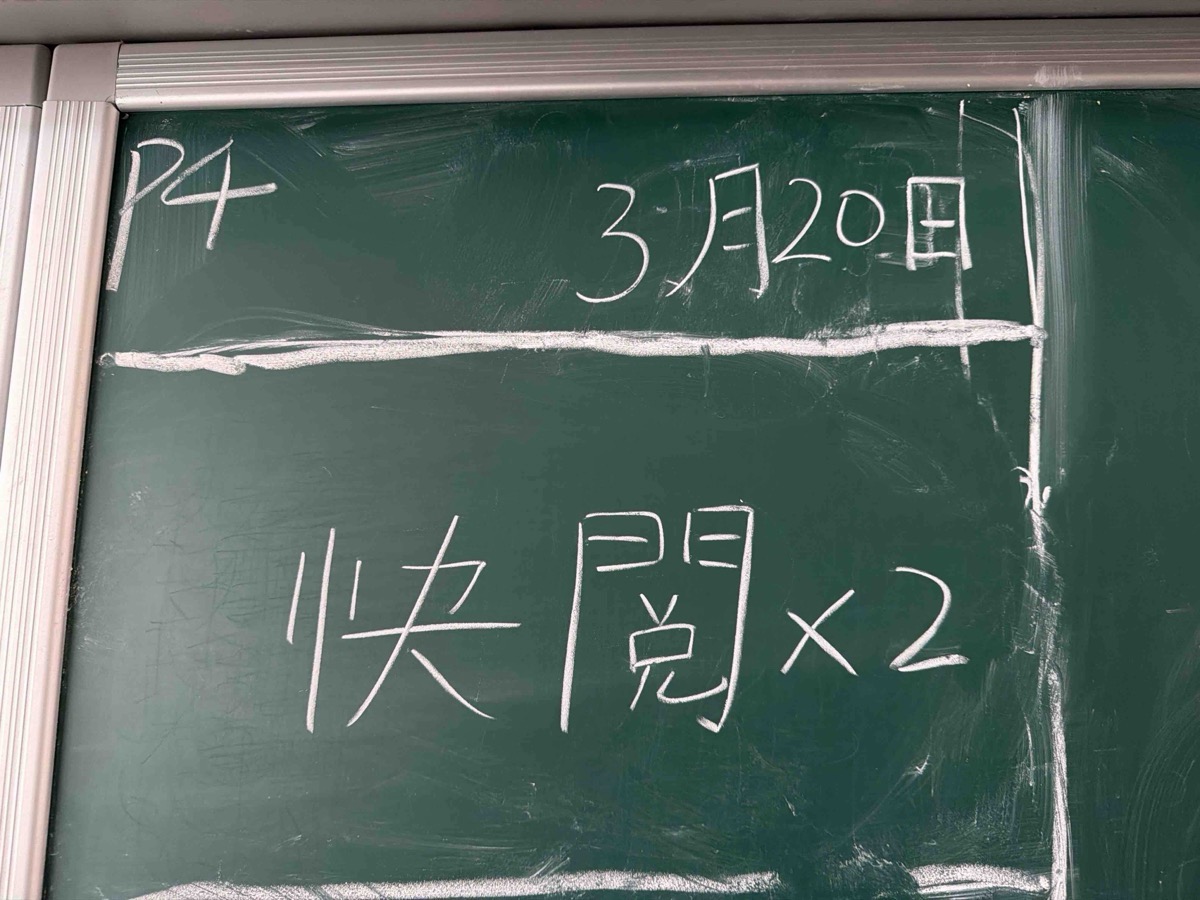 P4 3月20日
快閱×2